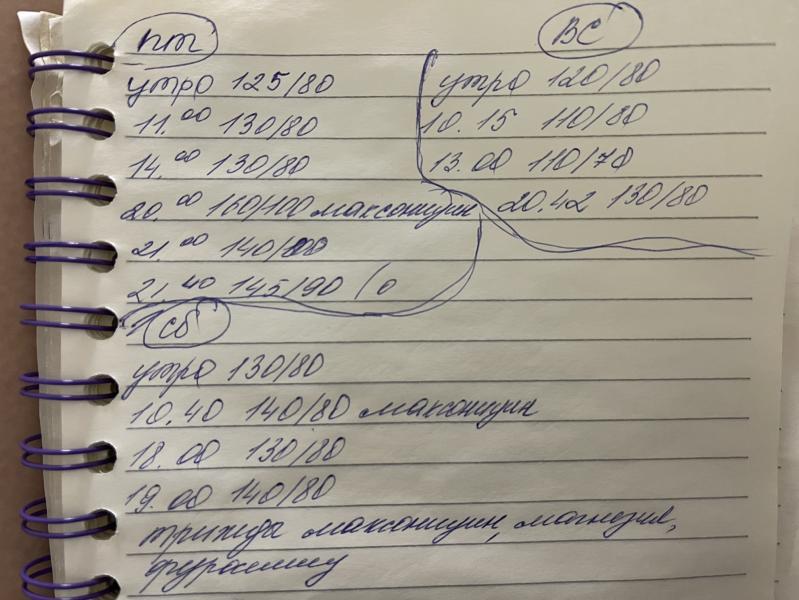 пт
утро 125/80
11.00 130/80
14.00 130/80
20.00 160/100 максонидин
21.00 140/
21.40 145/90 (о
ВС
утро 120/80
10.15 110/80
13.00 110/70
20.42 130/80
сб
утро 130/80
10.40 140/80 максонидин
18.00 130/80
19.00 140/80
трижды максонидин, магнезия,